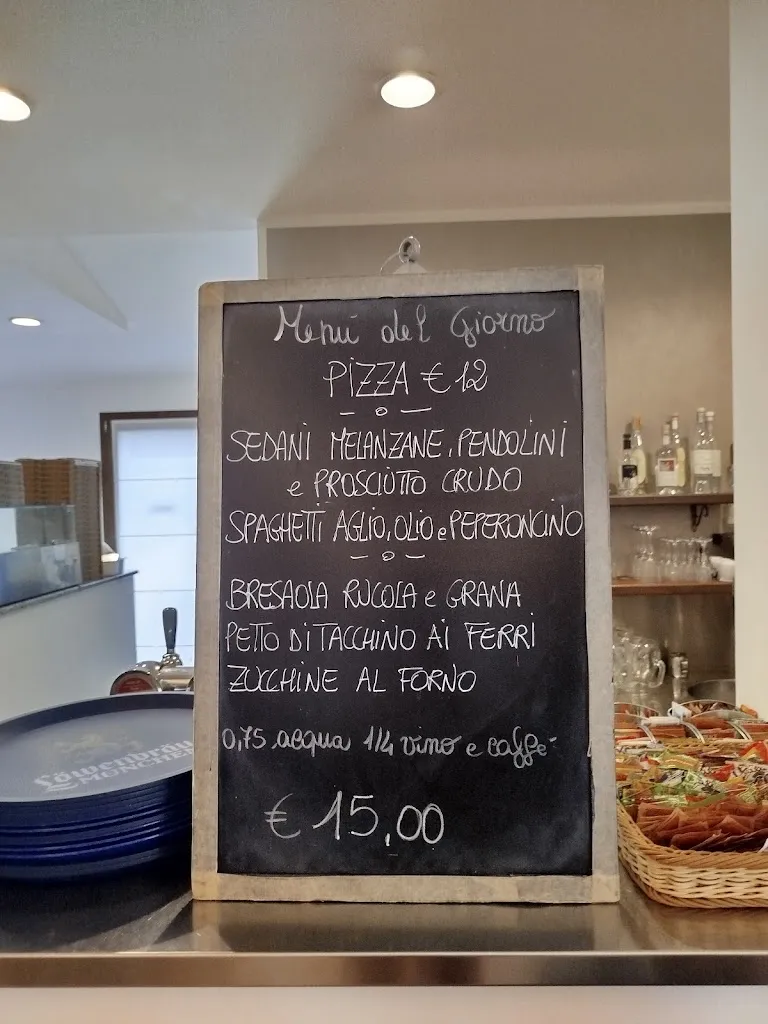 Menú del Giorno
PIZZA € 12
SEDANI MELANZANE, PENDOLINI
e PROSCIUTTO CRUDO
SPAGHETTI AGLIO, OLIO e PEPERONCINO
BRESAOLA RUCOLA e GRANA
PETTO DI TACCHINO AI FERRI
ZUCCHINE AL FORNO
0,75 acqua 1/4 vino e caffè
€ 15,00
Löwenbräu
MÜNCHEN